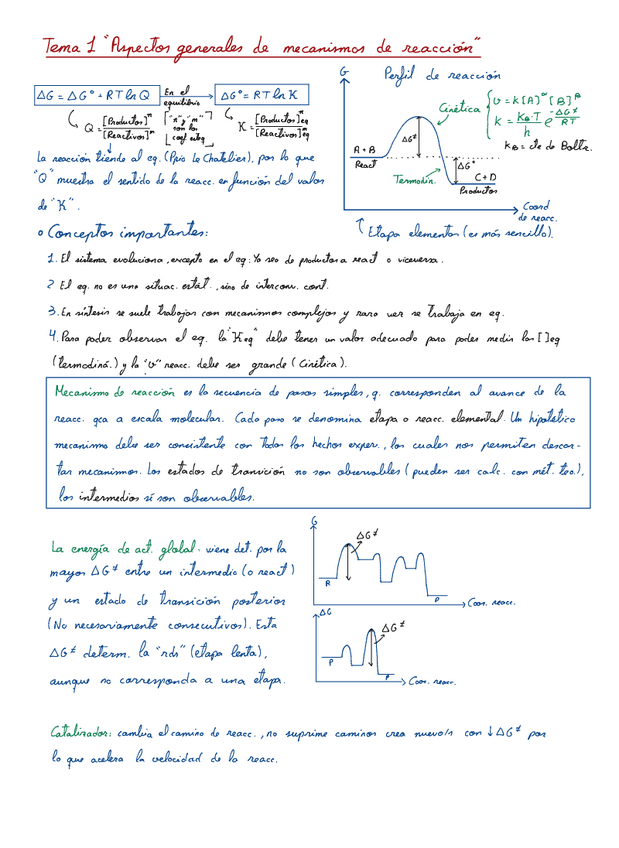 Tema 1 "Aspectos generales de mecanismos de reacción"
ΔG = ΔG° + RT ln Q
En el equilibrio
ΔG° = RT ln K
Q = [Productos]ⁿ / [Reactivos]ᵐ
["n" y "m" son los coef esteq]
K = [Productos]ⁿeq / [Reactivos]ᵐeq
La reacción tiende al eq. (Ppio Le Chatelier), por lo que
"Q" muestra el sentido de la reacc. en función del valor
de "K".
G
Perfil de reacción
Cinética
v = k[A]^α [B]^β
k = K_B·T / h e^(-ΔG≠/RT)
K_B = cte de Boltz.
A + B
React
ΔG≠
ΔG°
Termodin.
C + D
Productos
Coord de reacc.
Etapa elemental (es más sencillo).
Conceptos importantes:
1. El sistema evoluciona, excepto en el eq: Ya sea de productos a react o viceversa.
2 El eq. no es una situac. estát., sino de interconv. cont.
3. En síntesis se suele trabajar con mecanismos complejos y rara vez se trabaja en eq.
4. Para poder observar el eq. la "Keq" debe tener un valor adecuado para poder medir las [ ]eq
(termodiná.) y la "v" reacc. debe ser grande (cinética).
Mecanismo de reacción es la secuencia de pasos simples, q. corresponden al avance de la
reacc. qca a escala molecular. Cada paso se denomina etapa o reacc. elemental. Un hipotético
mecanismo debe ser consistente con todos los hechos exper., los cuales nos permiten descar-
tar mecanismos. Los estados de transición no son observables (pueden ser calc. con mét. teo.),
los intermedios sí son observables.
La energía de act. global. viene det. por la
mayor ΔG≠ entre un intermedio (o react)
y un estado de transición posterior
(No necesariamente consecutivos). Esta
ΔG≠ determ. la "rds" (etapa lenta),
aunque no corresponda a una etapa.
G
ΔG≠
R
P
Coor. reacc.
ΔG
ΔG≠
P
P
Coor. reacc.
Catalizador: cambia el camino de reacc., no suprime caminos crea nuevo/s con ↓ΔG≠ por
lo que acelera la velocidad de la reacc.